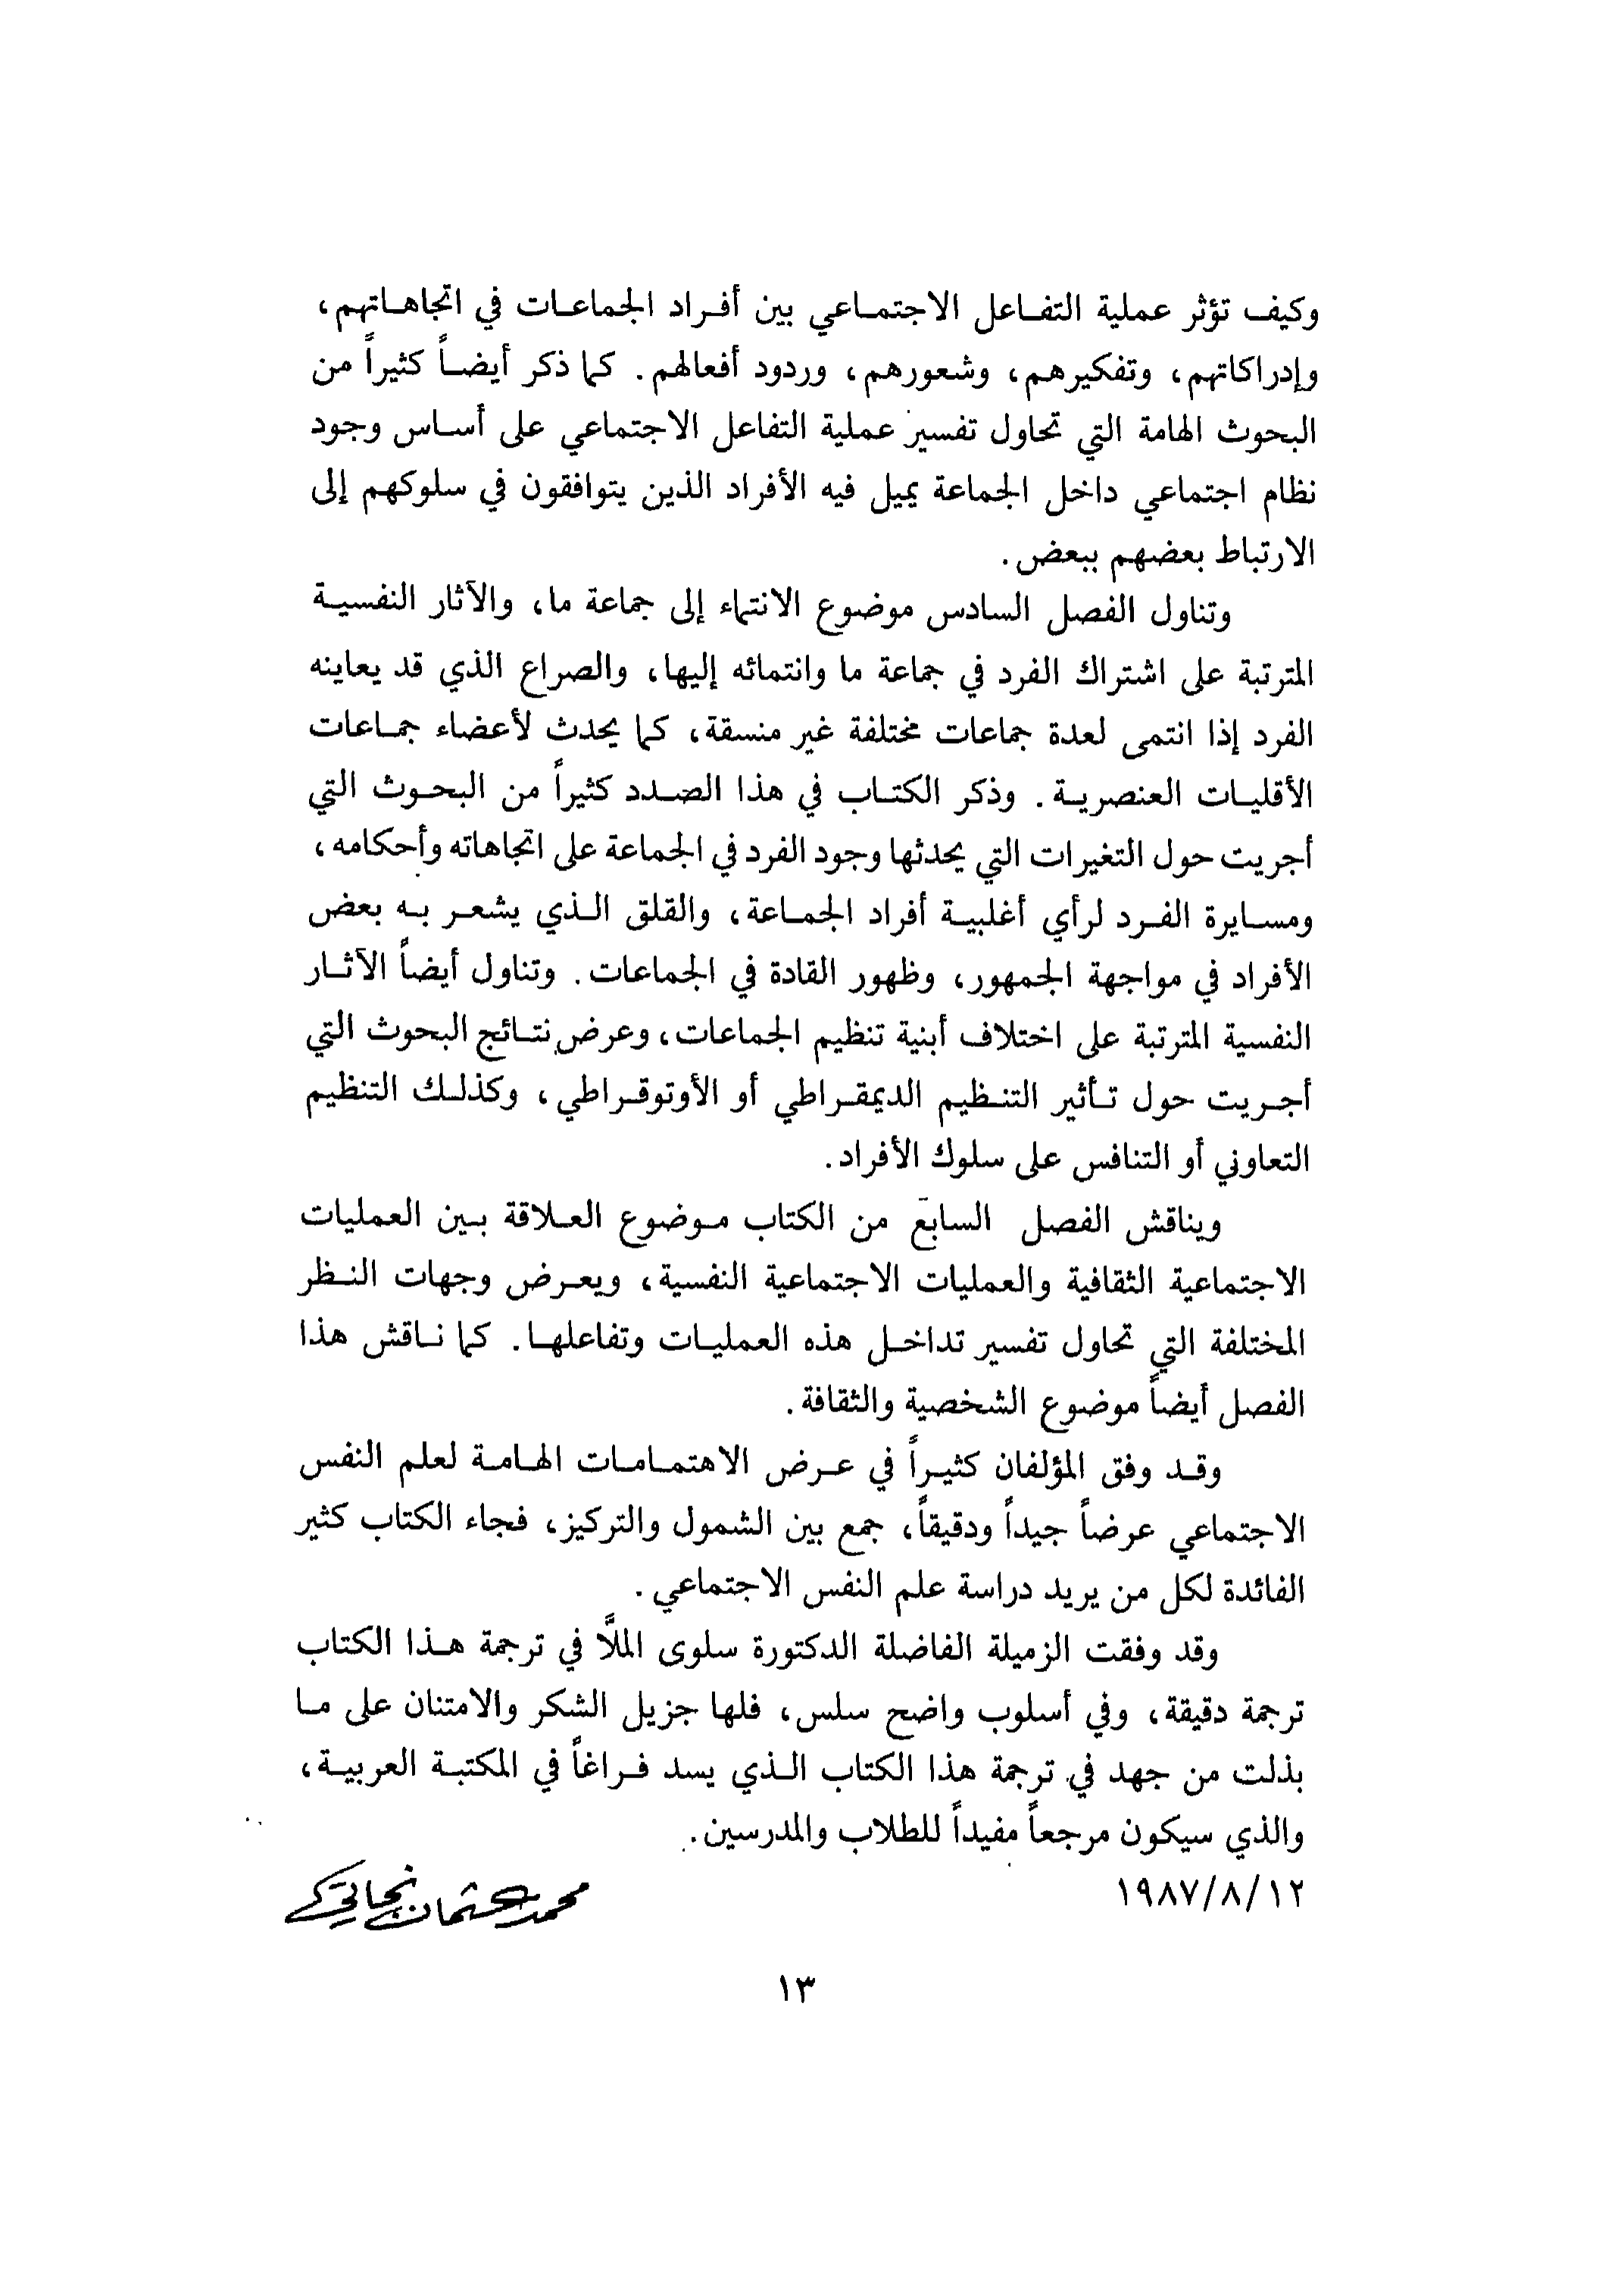 وكيف تؤثر عملية التفاعل الاجتماعي بين أفراد الجماعات في اتجاهاتهم،
وإدراكاتهم، وتفكيرهم، وشعورهم، وردود أفعالهم. كما ذكر أيضاً كثيراً من
البحوث الهامة التي تحاول تفسير عملية التفاعل الاجتماعي على أساس وجود
نظام اجتماعي داخل الجماعة يميل فيه الأفراد الذين يتوافقون في سلوكهم إلى
الارتباط بعضهم ببعض.
وتناول الفصل السادس موضوع الانتماء إلى جماعة ما، والآثار النفسية
المترتبة على اشتراك الفرد في جماعة ما وانتمائه إليها، والصراع الذي قد يعاينه
الفرد إذا انتمى لعدة جماعات مختلفة غير منسقة، كما يحدث لأعضاء جماعات
الأقليات العنصرية. وذكر الكتاب في هذا الصدد كثيراً من البحوث التي
أجريت حول التغيرات التي يحدثها وجود الفرد في الجماعة على اتجاهاته وأحكامه،
ومسايرة الفرد لرأي أغلبية أفراد الجماعة، والقلق الذي يشعر به بعض
الأفراد في مواجهة الجمهور، وظهور القادة في الجماعات. وتناول أيضاً الآثار
النفسية المترتبة على اختلاف أبنية تنظيم الجماعات، وعرض نتائج البحوث التي
أجريت حول تأثير التنظيم الديمقراطي أو الأوتوقراطي، وكذلك التنظيم
التعاوني أو التنافس على سلوك الأفراد.
ويناقش الفصل السابع من الكتاب موضوع العلاقة بين العمليات
الاجتماعية الثقافية والعمليات الاجتماعية النفسية، ويعرض وجهات النظر
المختلفة التي تحاول تفسير تداخل هذه العمليات وتفاعلها. كما ناقش هذا
الفصل أيضاً موضوع الشخصية والثقافة.
وقد وفق المؤلفان كثيراً في عرض الاهتمامات الهامة لعلم النفس
الاجتماعي عرضاً جيداً ودقيقاً، جمع بين الشمول والتركيز، فجاء الكتاب كثير
الفائدة لكل من يريد دراسة علم النفس الاجتماعي.
وقد وفقت الزميلة الفاضلة الدكتورة سلوى الملَّا في ترجمة هذا الكتاب
ترجمة دقيقة، وفي أسلوب واضح سلس، فلها جزيل الشكر والامتنان على ما
بذلت من جهد في ترجمة هذا الكتاب الذي يسد فراغاً في المكتبة العربية،
والذي سيكون مرجعاً مفيداً للطلاب والمدرسين.
١٩٨٧/٨/١٢ محمد عثمان نجاتي
١٣